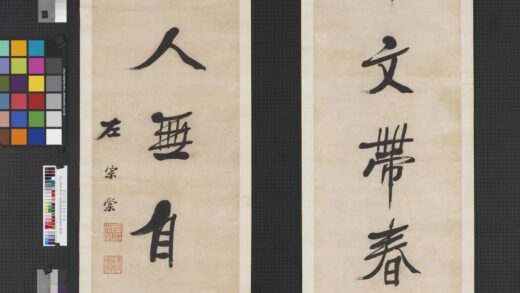 文帶春
人無自
左宗棠